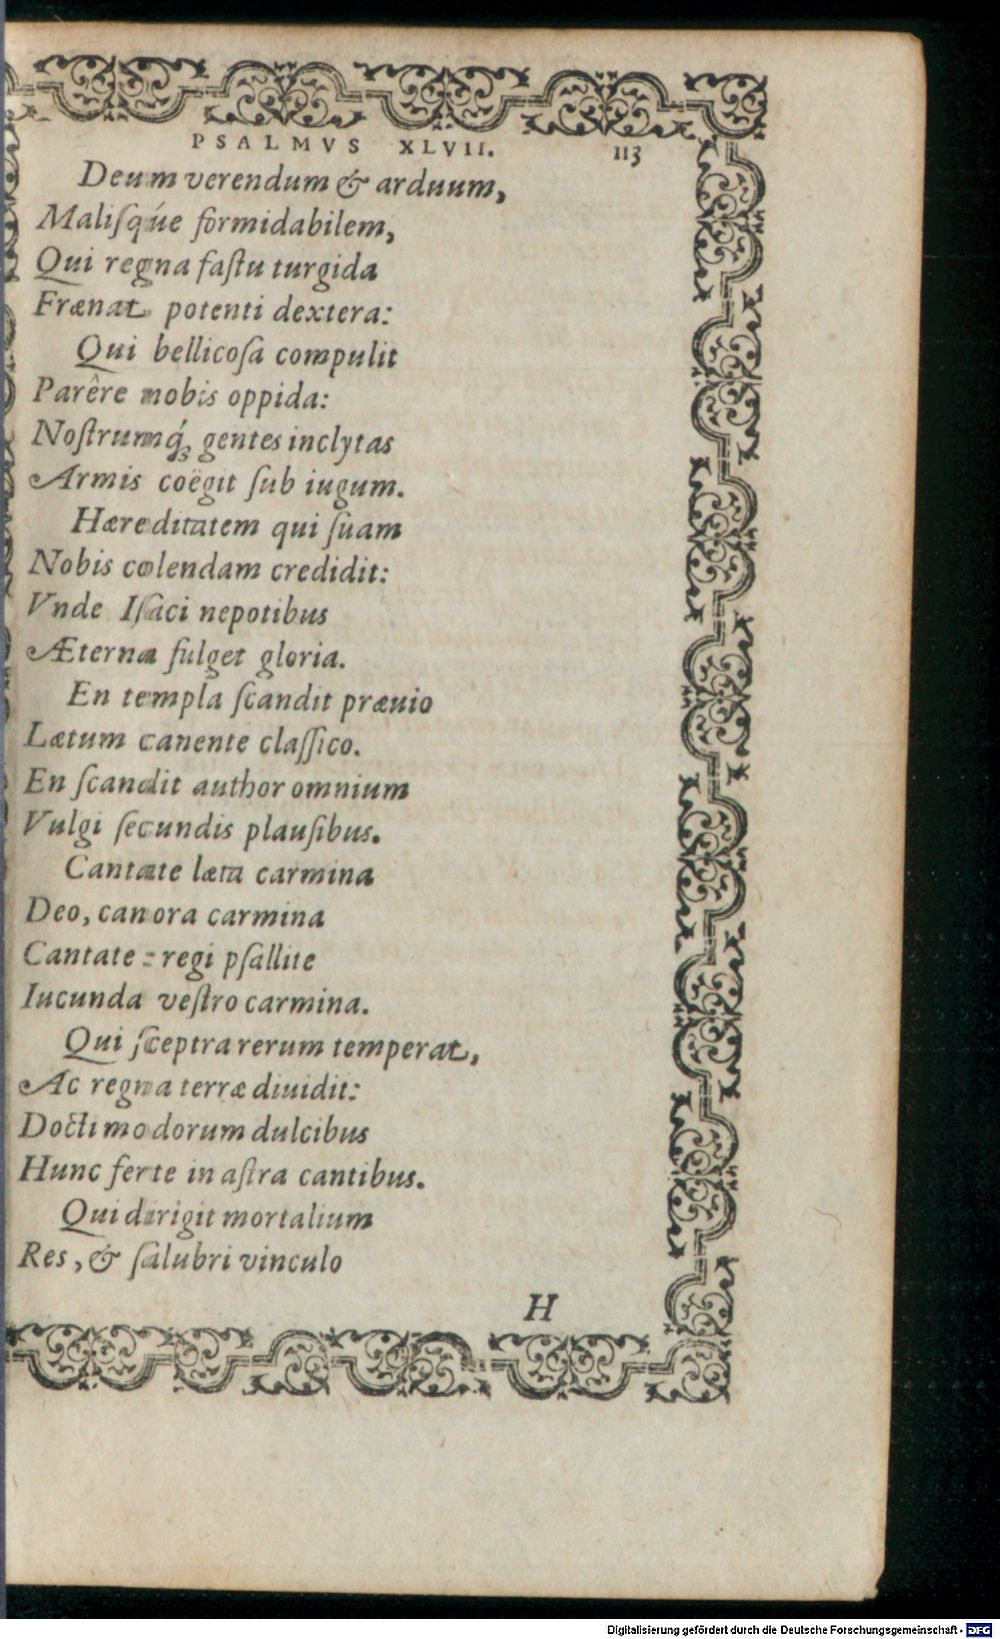 PSALMVS XLVII. 113
Deum verendum & arduum,
Maliſq́ue formidabilem,
Qui regna faſtu turgida
Frænat potenti dextera:
Qui bellicoſa compulit
Parêre nobis oppida:
Noſtrumq́; gentes inclytas
Armis coëgit ſub iugum.
Hæreditatem qui ſuam
Nobis colendam credidit:
Vnde Iſaci nepotibus
Æterna fulget gloria.
En templa ſcandit præuio
Lætum canente claſſico.
En ſcandit author omnium
Vulgi ſecundis plauſibus.
Cantate læta carmina
Deo, canora carmina
Cantate: regi pſallite
Iucunda veſtro carmina.
Qui ſceptra rerum temperat,
Ac regna terræ diuidit:
Docti modorum dulcibus
Hunc ferte in aſtra cantibus.
Qui dirigit mortalium
Res, & ſalubri vinculo
H
Digitalisierung gefördert durch die Deutsche Forschungsgemeinschaft - DFG